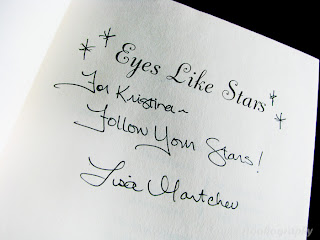 Eyes Like Stars
For Kristina~
Follow Your Stars!
Lisa Mantchev